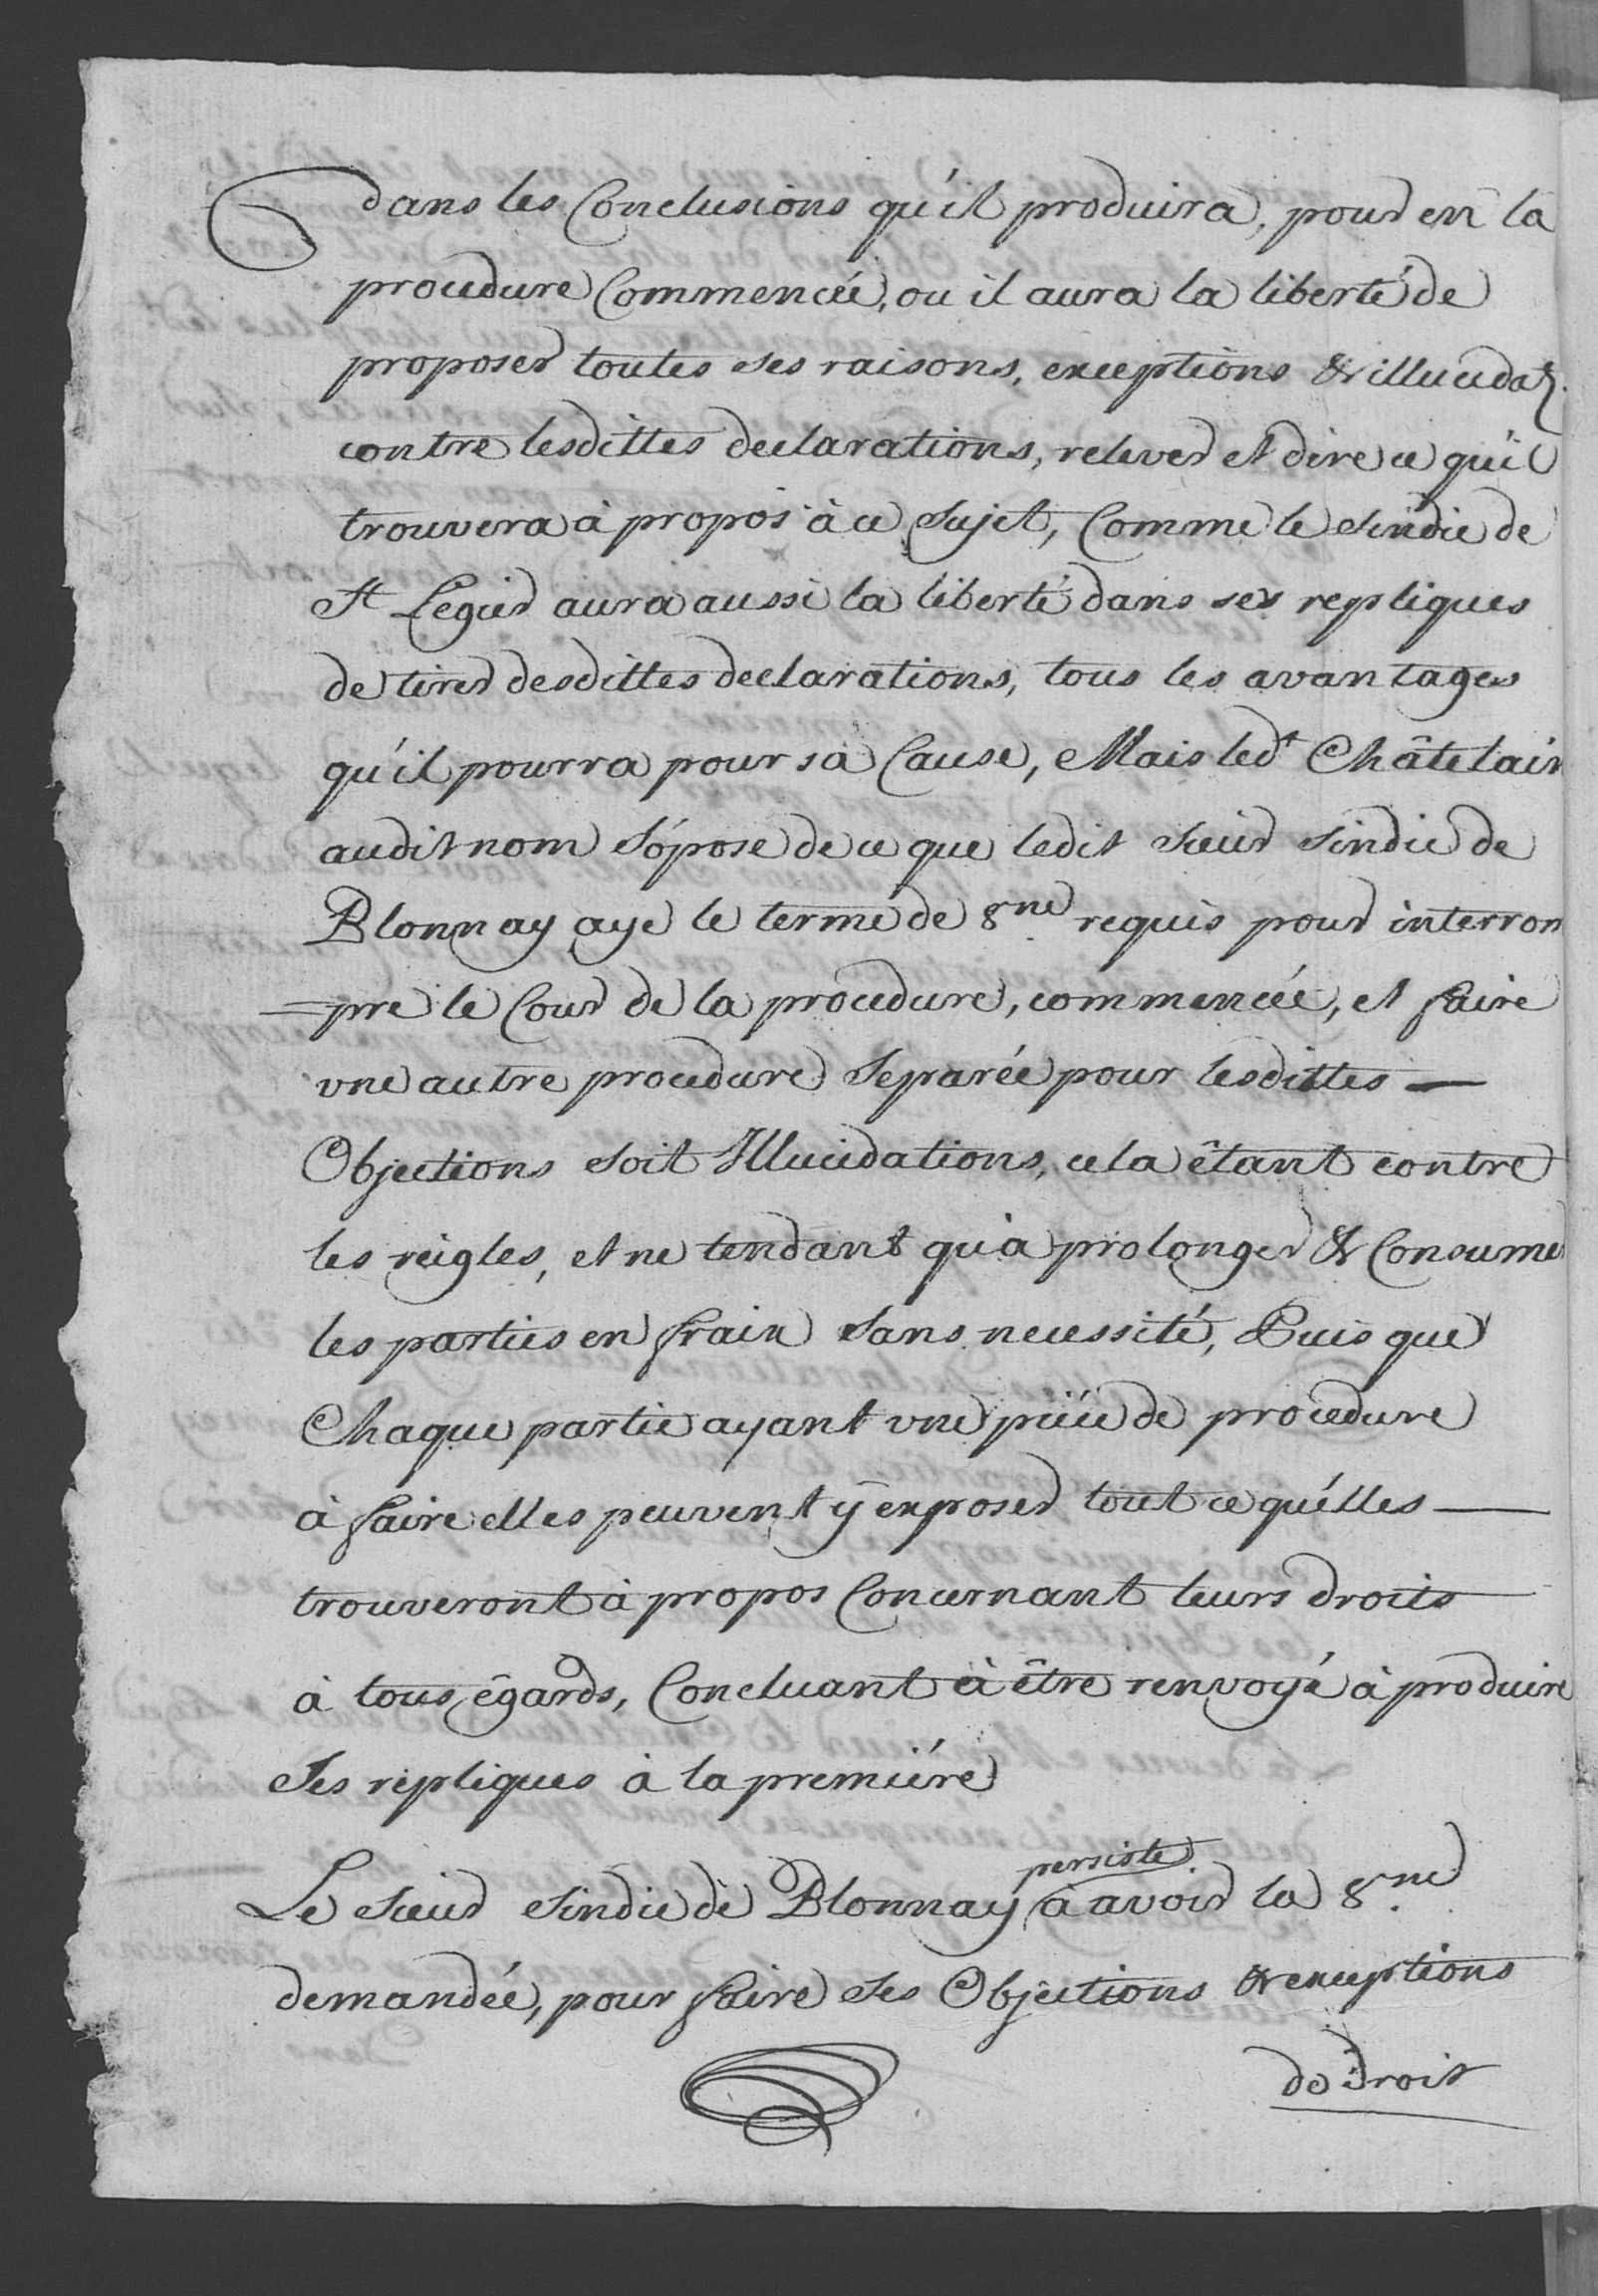 dans les Conclusions qu'il produira, pour en la
procedure Commencée, ou il aura la liberté de
proposer toutes ses raisons, exceptions & illucidaõ.
contre lesdittes declarations, relever et dire ce qu'il
trouvera à propos à ce Sujet, Comme le Sindic de
St Legier aura aussi la liberté dans ses repliques
de tirer desdittes declarations, tous les avantages
qu'il pourra pour sa Cause, Mais led.t Châtelain
audit nom S'ópose de ce que ledit Sieur Sindic de
Blonnay aye le terme de 8.ne requis pour interrom
=pre le Cour de la procedure, commencée, et faire
une autre procedure Separée pour lesdittes —
Objections soit Illucidations, cela êtant contre
les reigles, et ne tendant qu'à prolonger & Consumer
les parties en fraix Sans necessité, Puis que
Chaque partie ayant une piéce de procedure
à faire elles peuvent ÿ exposer tout ce qu'elles —
trouveront à propos Concernant leurs droits
à tous êgards, Concluant à être renvoyé à produire
Ses repliques à la premiére
Le Sieur Sindic de Blonnay persiste à avoir la 8.ne
demandée, pour faire Ses Objections & exceptions
de Droit